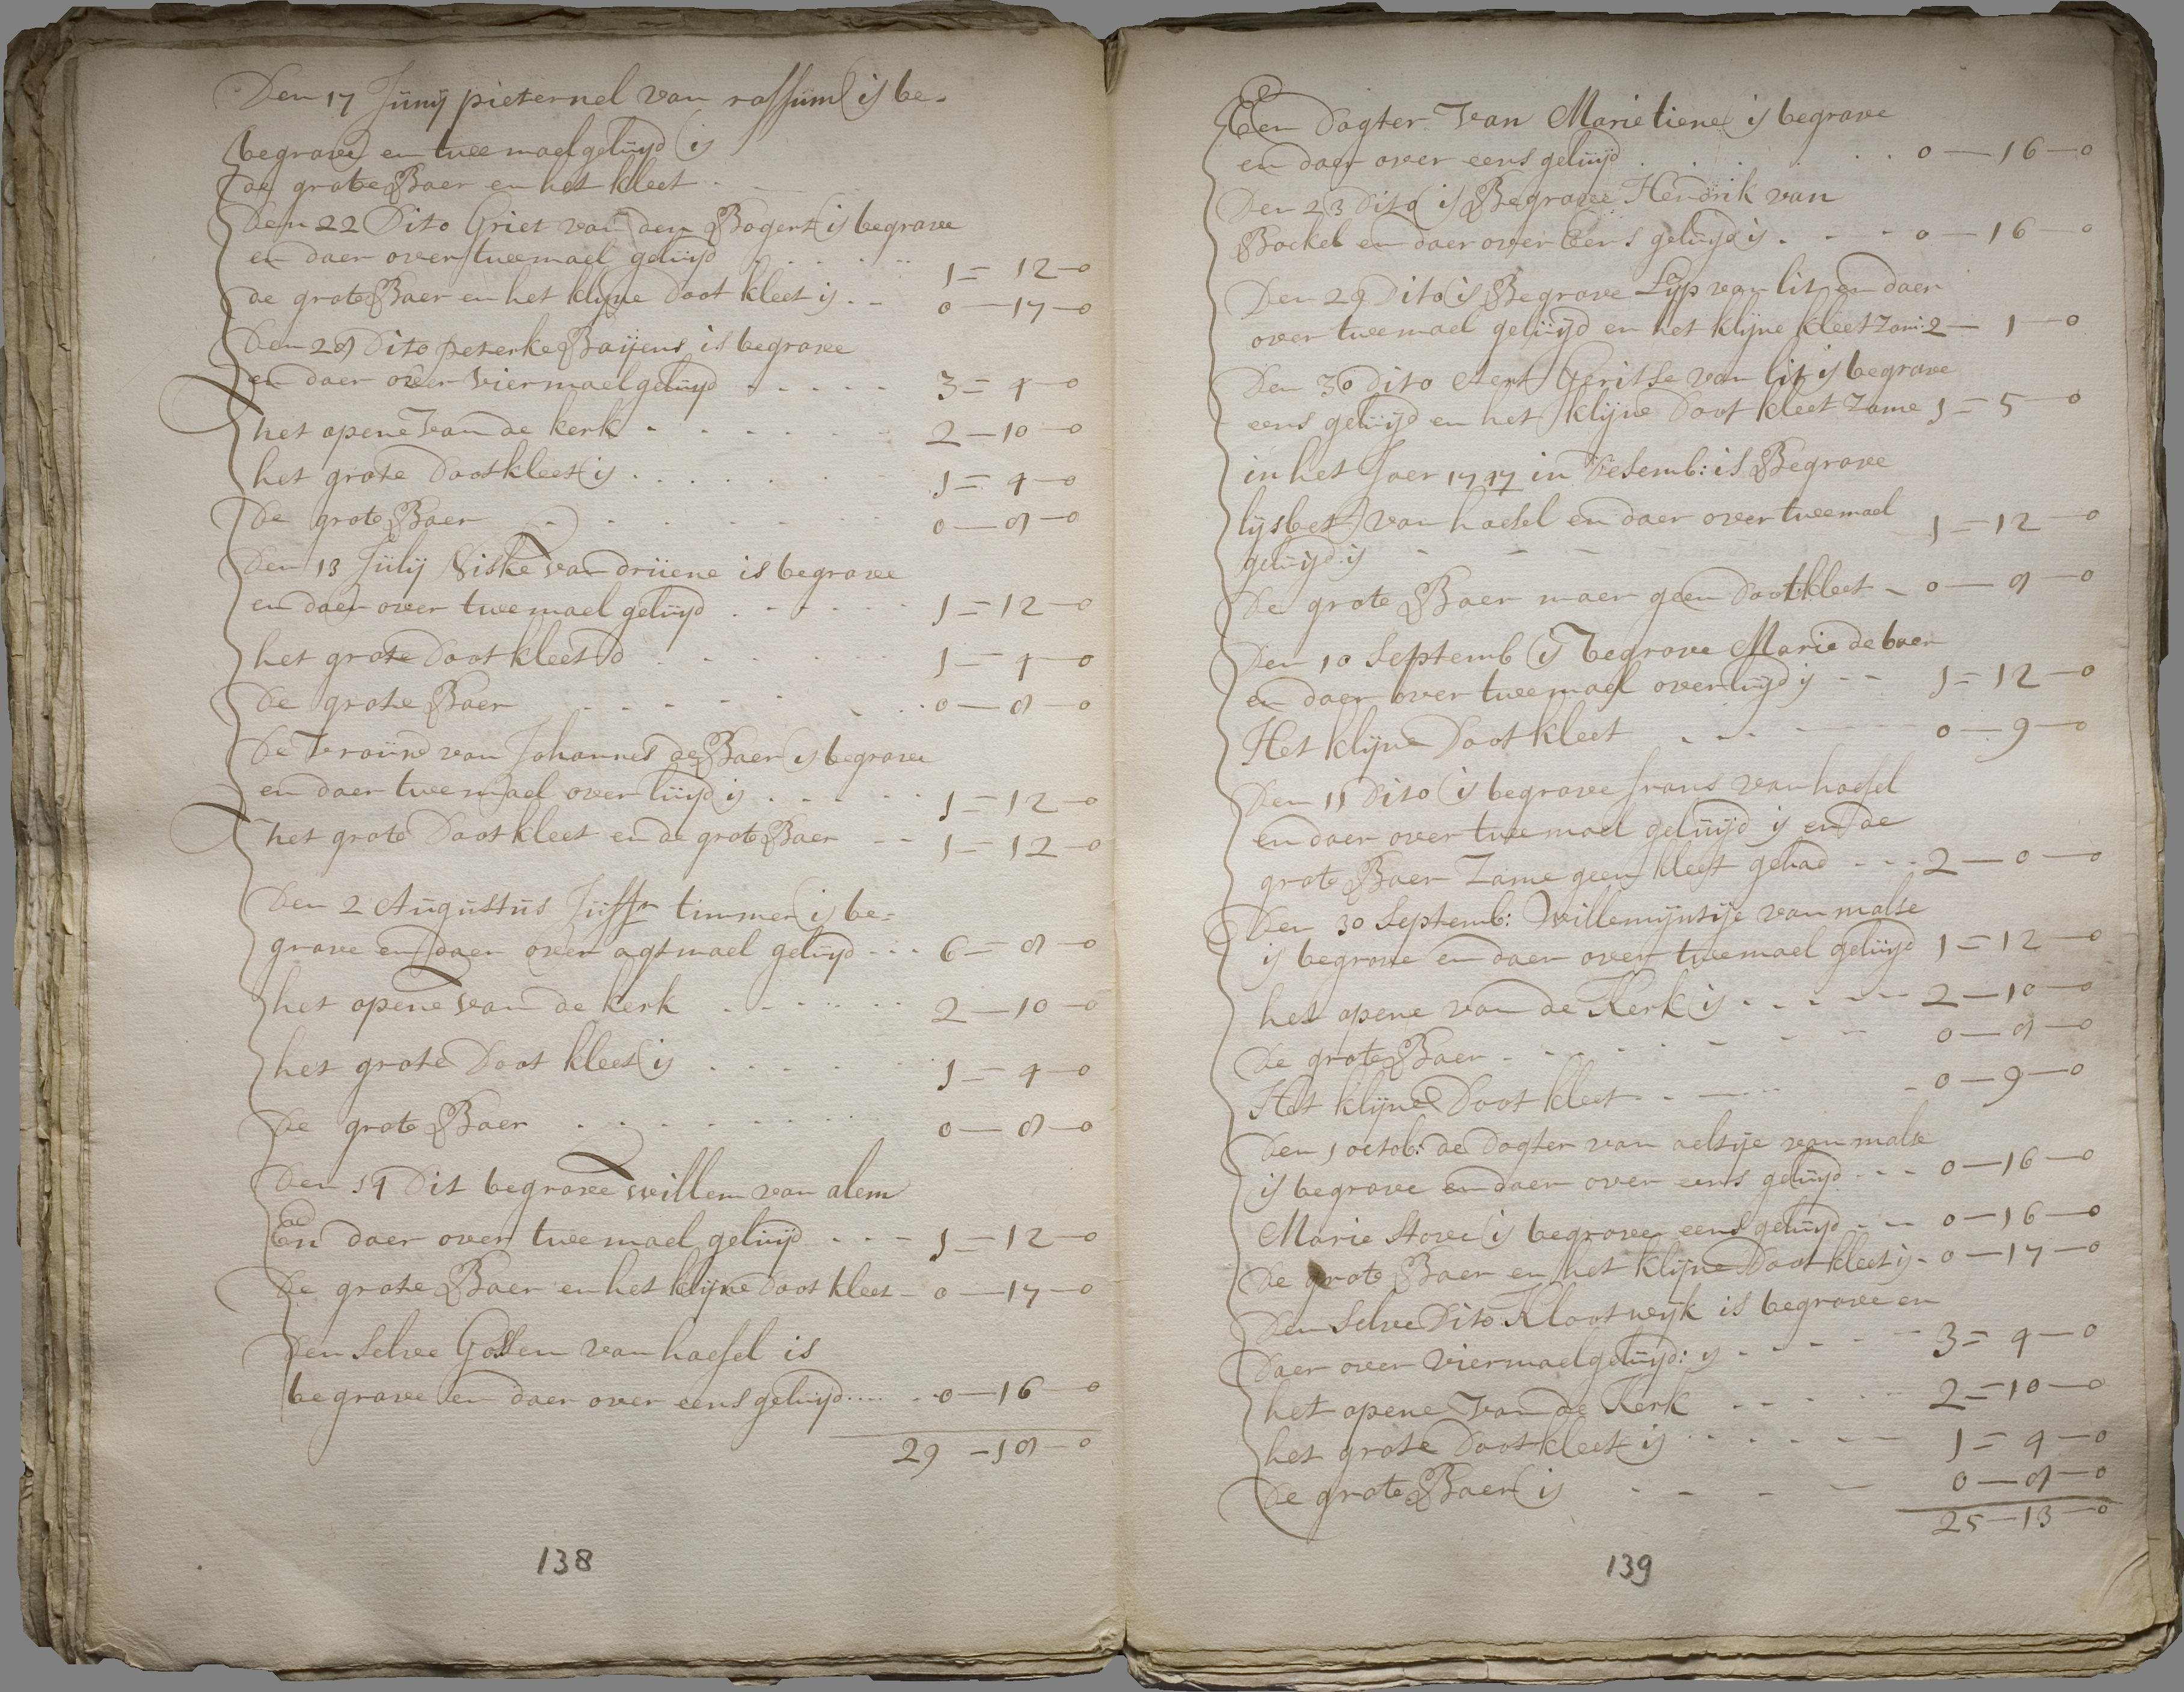 Den 17 Junij pieternel van rossum is be-
begrave en twee mael geluyd is
de grote Baer en het kleet
Den 22 Dito Griet van den Bogert is begrave
en daer over tweemael geluyd 1 = 12 - 0
de grote Baer en het klyne doot kleet is 0 - 17 - 0
Den 28 Dito peterke Baijens is begrave
en daer over viermael geluyd 3 = 4 - 0
het opene van de kerk 2 - 10 - 0
het grote Dootkleet is 1 = 4 - 0
De grote Baer 0 - 8 - 0
Den 13 Julij Niske van driiene is begrave
en daer over twemael geluyd 1 = 12 - 0
het grote Doot kleet 1 - 4 - 0
De grote Baer 0 - 8 - 0
De Vrouw van Johannes de Baer is begrave
en daer tweemael over luyd is 1 = 12 - 0
het grote Doot kleet en de grote Baer 1 - 12 - 0
Den 2 Augustus Juffr timmer is be=
grave en daer over agt mael geluyd 6 = 8 - 0
het opene van de kerk 2 - 10 - 0
het grote Doot kleet is 1 = 4 - 0
De grote Baer 0 - 8 - 0
Den 14 Dit begrave willem van alem
En daer over twee mael geluyd 1 = 12 - 0
De grote Baer en het klijne doot kleet 0 - 17 - 0
Den Selve Gossen van haesel is
begrave en daer over eens geluyd 0 - 16 - 0
29 - 18 - 0
138
Een Dogter Van Marie tiene is begrave
en daer over eens geluyd 0 - 16 - 0
Den 23 dito is Begrave Hendrik van
Bockel en daer over Eens geluyd is 0 - 16 - 0
Den 29 Dito is Begrave Lijp van lit en daer
over twemael geluyd en het klyne kleet Zam: 2 - 1 - 0
Den 30 dito Aert Geritse van lit is begrave
eens geluyd en het klyne Doot kleet Zame 1 = 5 - 0
in het Jaer 1747 in Desemb: is Begrave
lijsbet van haesel en daer over tweemael 1 = 12 - 0
geluyd is
De grote Baer maer geen Dootkleet 0 - 8 - 0
Den 10 Septemb is begrave Marie de baer
en daer over tweemael overluyd is 1 = 12 - 0
Het klijne Doot kleet 0 - 9 - 0
Den 11 Dito is begrave frans van haesel
en daer over twee mael geluyd is en de
grote Baer Zame geen kleet gehad 2 - 0 - 0
Den 30 Septemb: Willemijntije van malse
is begrave en daer over tweemael geluyd 1 = 12 - 0
het opene van de Kerk is 2 - 10 - 0
De grote Baer 0 - 8 - 0
Het klijne Doot kleet 0 - 9 - 0
Den 1 octob: de Dogter van aeltije van malse
is begrave en daer over eens geluyd 0 - 16 - 0
Marie Stove is begrave eens geluyd 0 - 16 - 0
De grote Baer en het klijne Doot kleet is 0 - 17 - 0
Den Selve Dito Klootwyk is begrave en
daer over Viermael geluyd: is 3 = 4 - 0
het opene Van de Kerk 2 = 10 - 0
het grote Doot kleet is 1 = 4 - 0
De grote Baer is 0 - 8 - 0
25 - 13 - 0
139